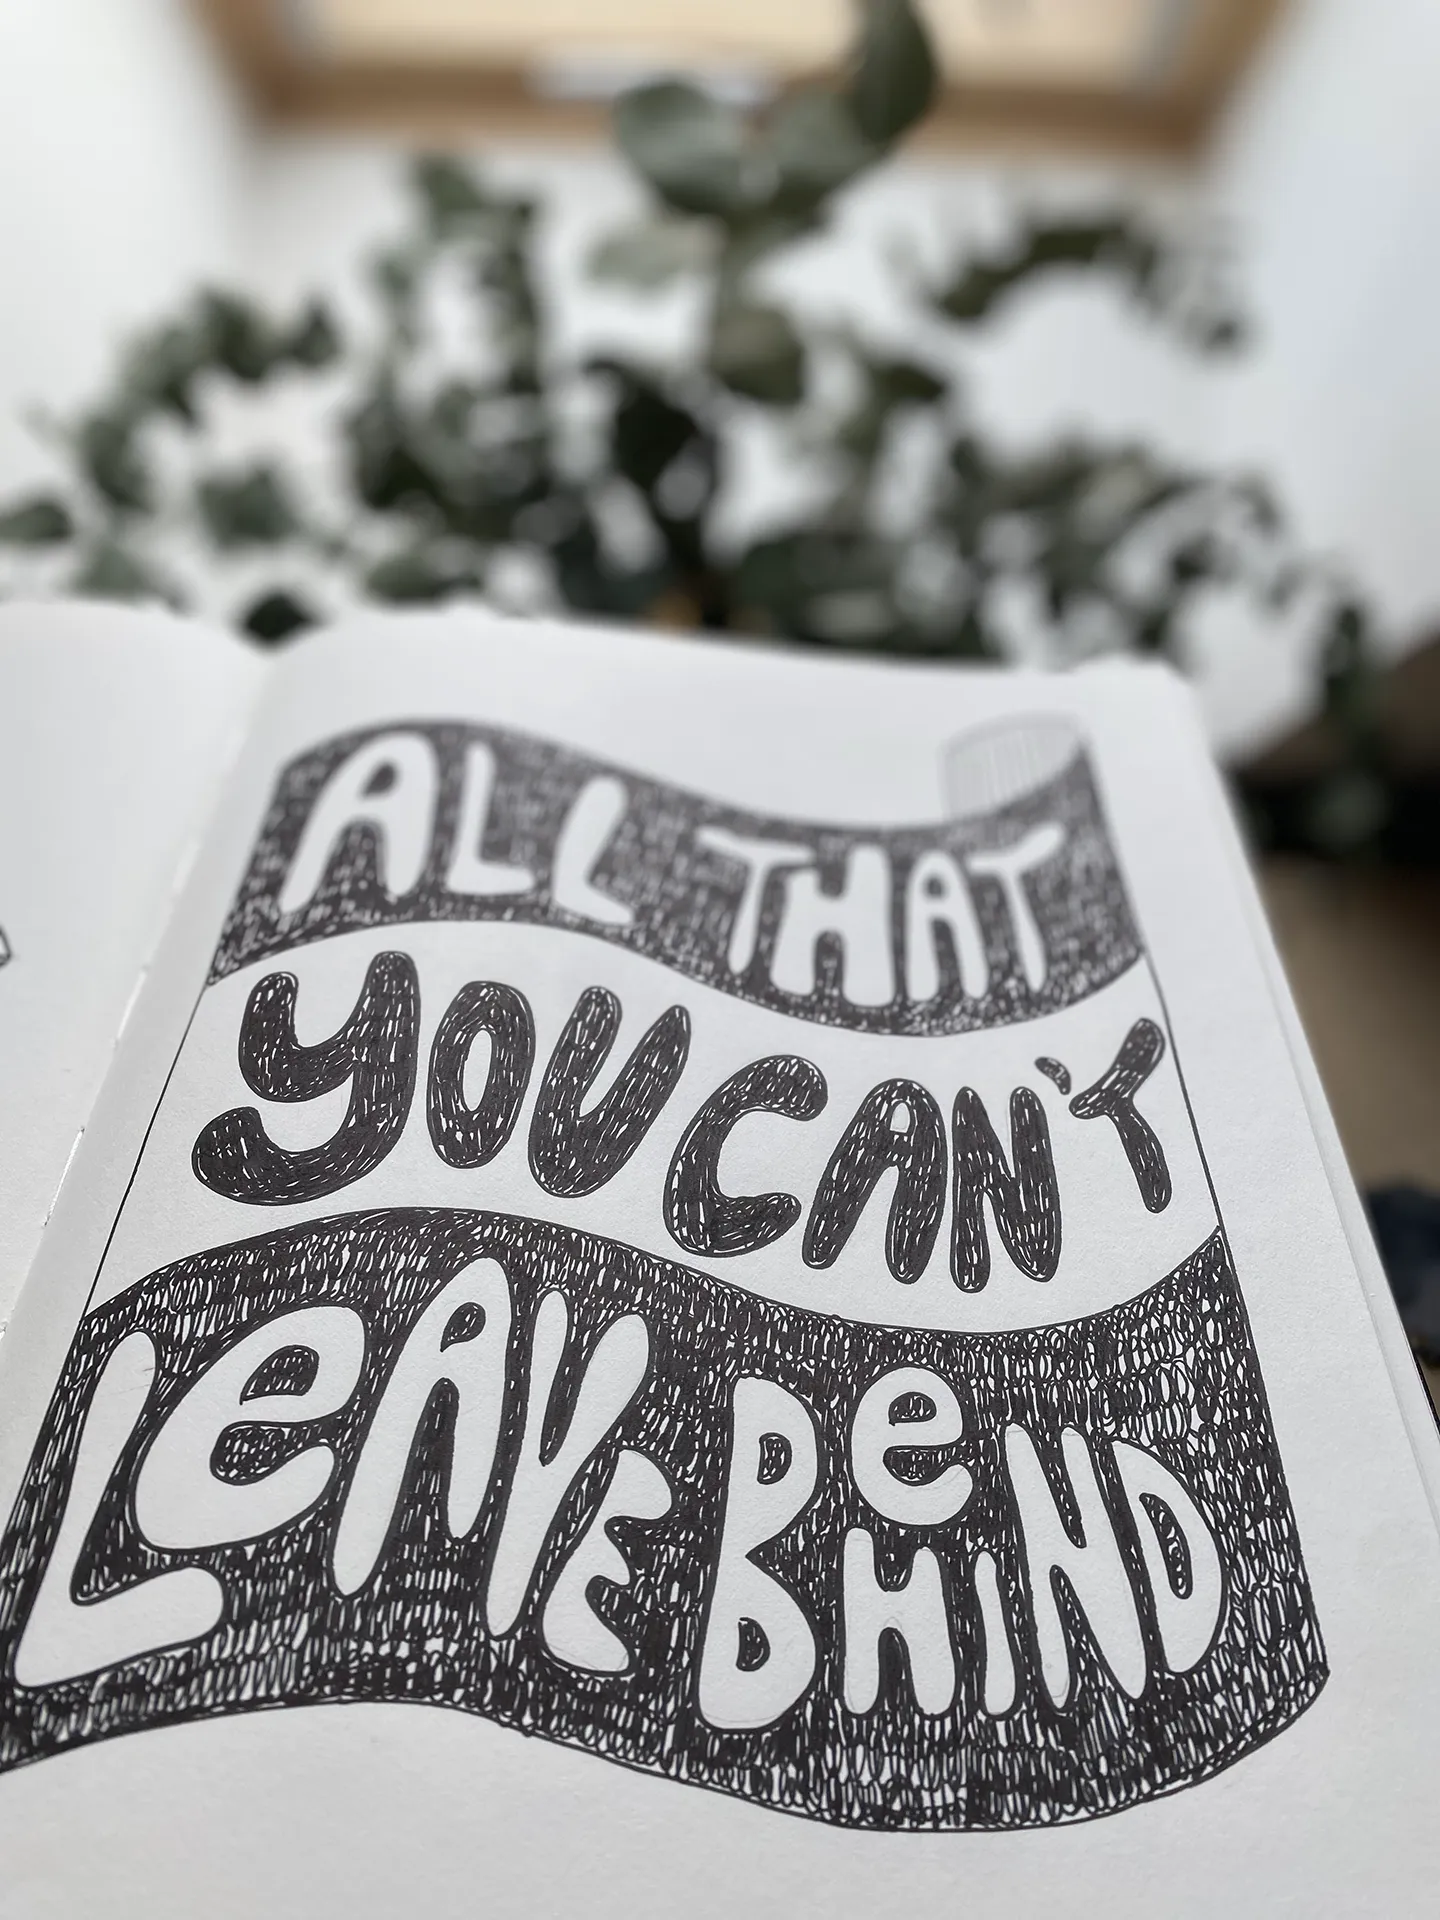 ALL THAT
YOU CAN'T
LeAVE BeHIND